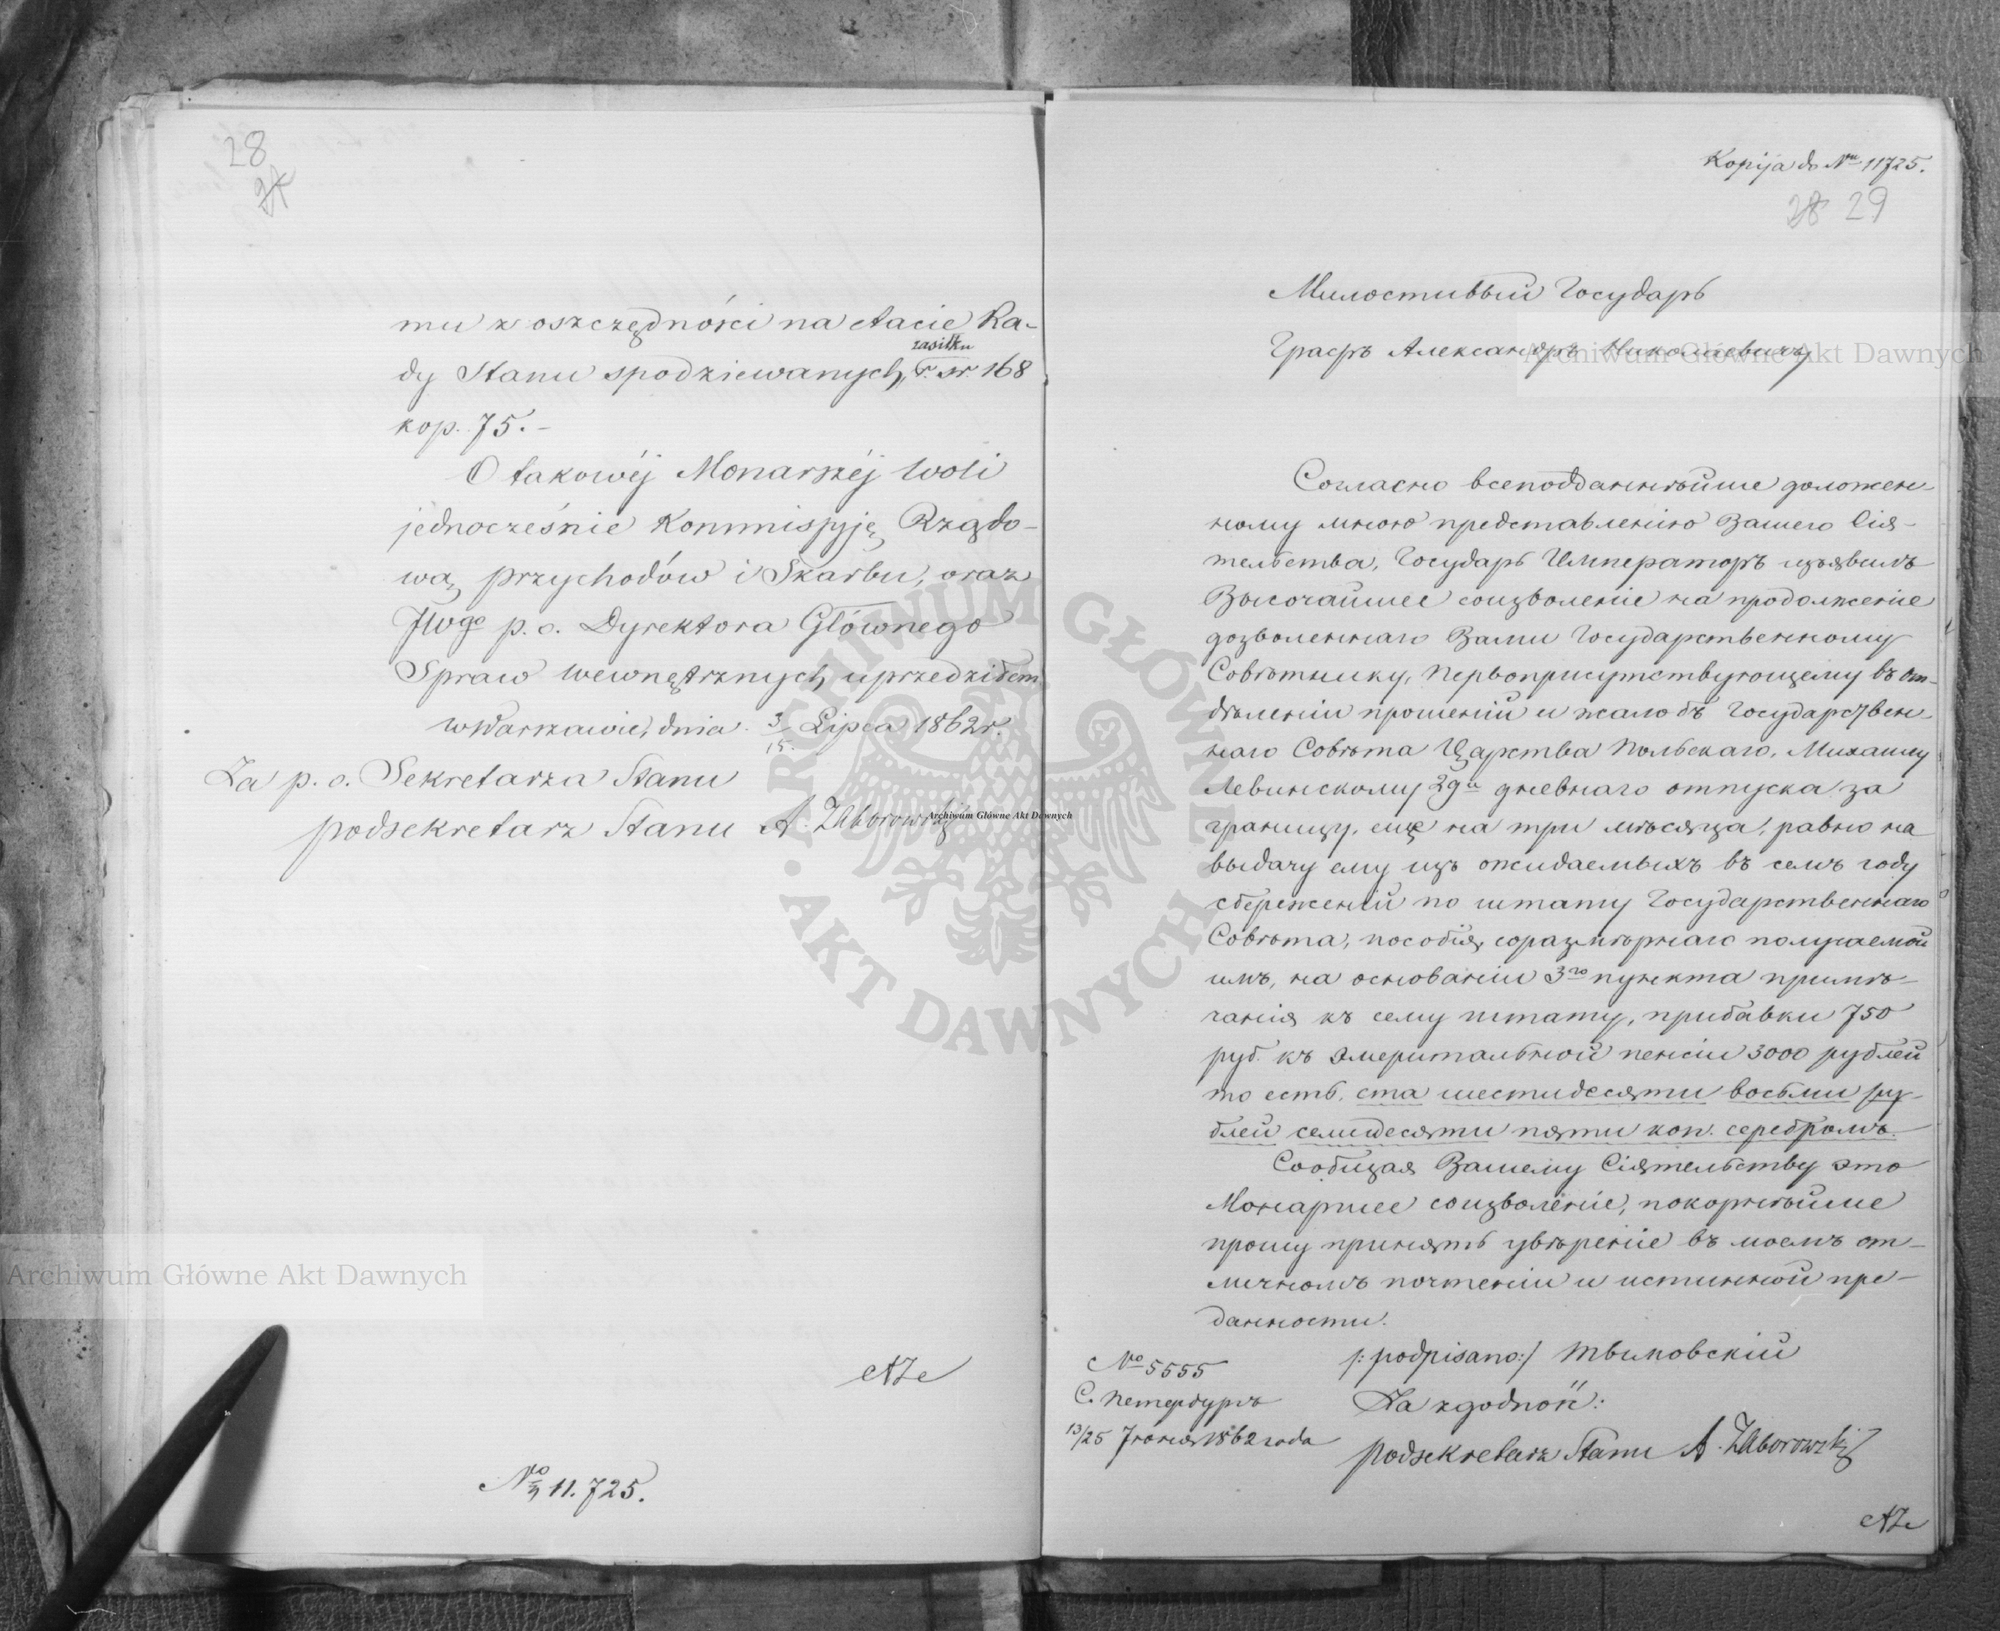 28
mu z oszczędności na etacie Ra-
dy Stanu spodziewanych, zasiłku r. sr. 168
kop. 75. -
O takowéj Monarszéj woli
jednocześnie Kommissyję Rządo-
wą przychodów i Skarbu, oraz
JWgo p. o. Dyrektora Głównego
Spraw wewnętrznych uprzedziłem
w Warszawie, dnia 3/15. Lipca 1862 r.
Za p. o. Sekretarza Stanu
podsekretarz Stanu A. Zaborowski
AZe
No 11.725.
Kopija do Nru 11725.
28 29
Милостивый Государь
Графъ Александръ Николаевичъ
Согласно всеподданнѣйше доложен-
ному мною представленію Вашего Сія-
тельства, Государь Императоръ изъявилъ
Высочайшее соизволеніе на продолженіе
дозволеннаго Вами Государственному
Совѣтнику, Первоприсутствующему въ от-
дѣленіи прошеній и жалобъ Государствен-
наго Совѣта Царства Польскаго, Михаилу
Левинскому 29и дневнаго отпуска за
границу, еще на три мѣсяца, равно на
выдачу ему изъ ожидаемыхъ въ семъ году
сбереженій по штату Государственнаго
Совѣта, пособія, соразмѣрнаго получаемой
имъ, на основаніи 3го пункта примѣ-
чанія къ сему штату, прибавки 750
руб. къ эмеритальной пенсіи 3000 рублей
то есть, ста шестидесяти восьми ру-
блей семидесяти пяти коп. серебромъ.
Сообщая Вашему Сіятельству это
Монаршее соизволеніе, покорнѣйше
прошу принять увѣреніе въ моемъ от-
личномъ почтеніи и истинной пре-
данности.
/: podpisano:/ Тымовскій
No 5555
С. Петербургъ
13/25 Іюня 1862 года
Za zgodność:
podsekretarz Stanu A. Zaborowski
AZe
Archiwum Główne Akt Dawnych
Archiwum Główne Akt Dawnych
Archiwum Główne Akt Dawnych
ARCHIWUM GŁÓWNE · AKT DAWNYCH ·